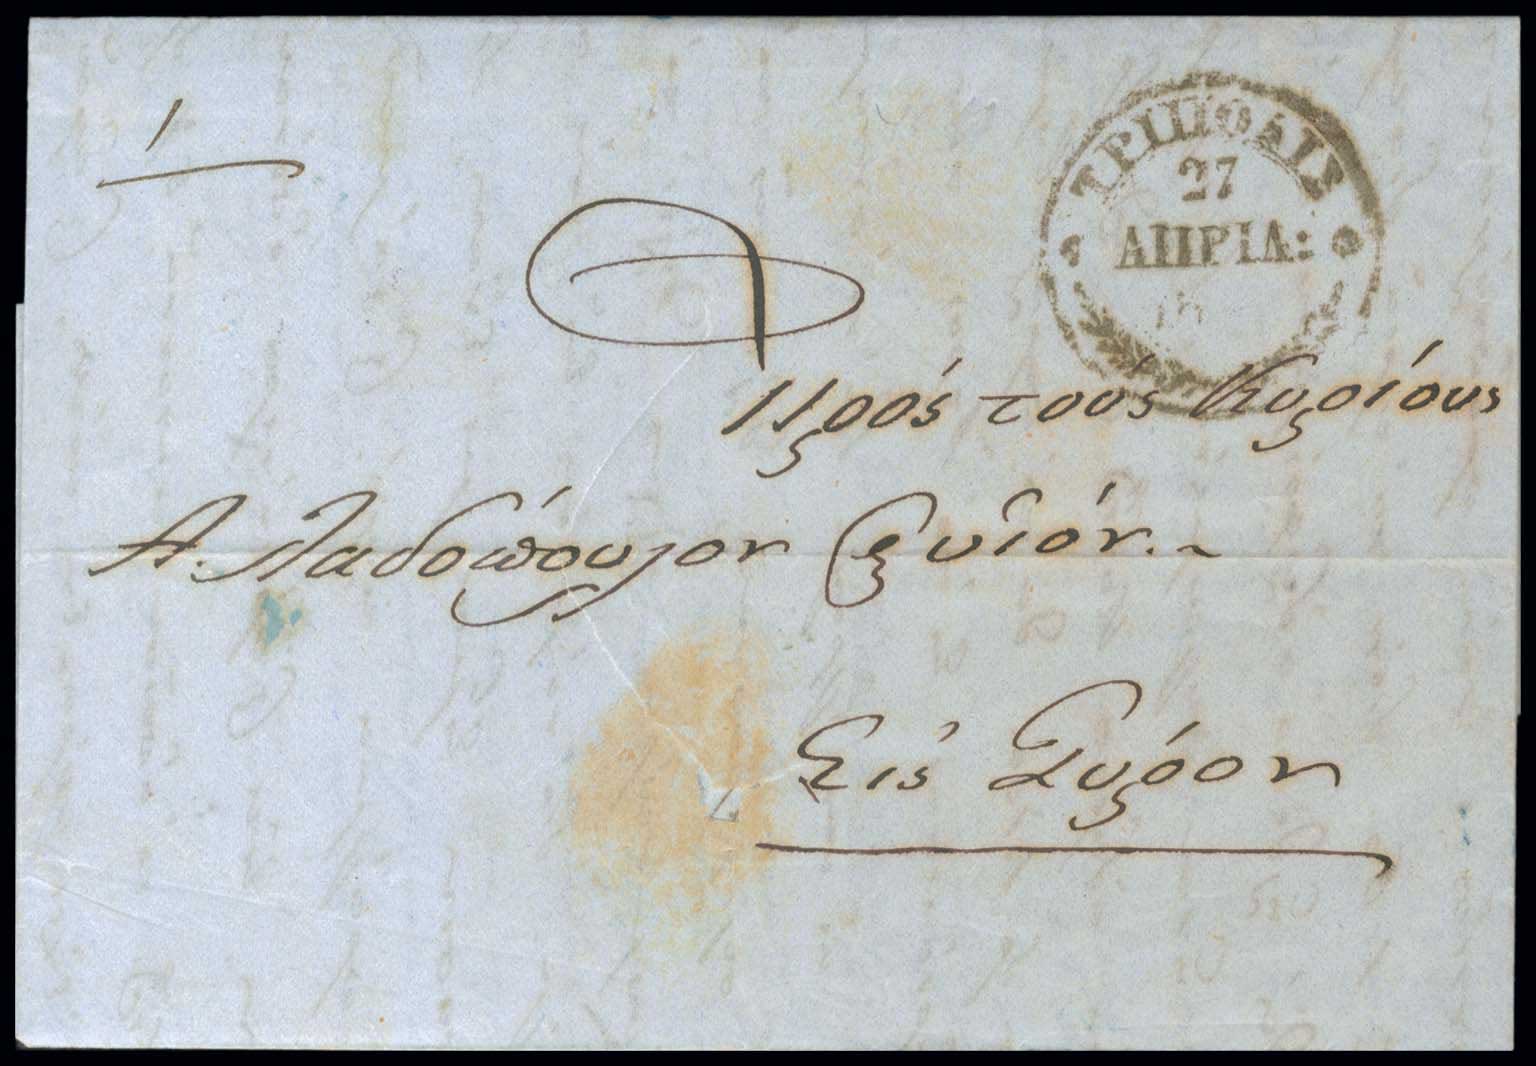 ΤΡΙΠΟΛΙΣ
27
ΑΠΡΙΛ:
Πρός τους Κυρίους
Α. Λαδόπουλον & υἱόν.
Εἰς Σύρον